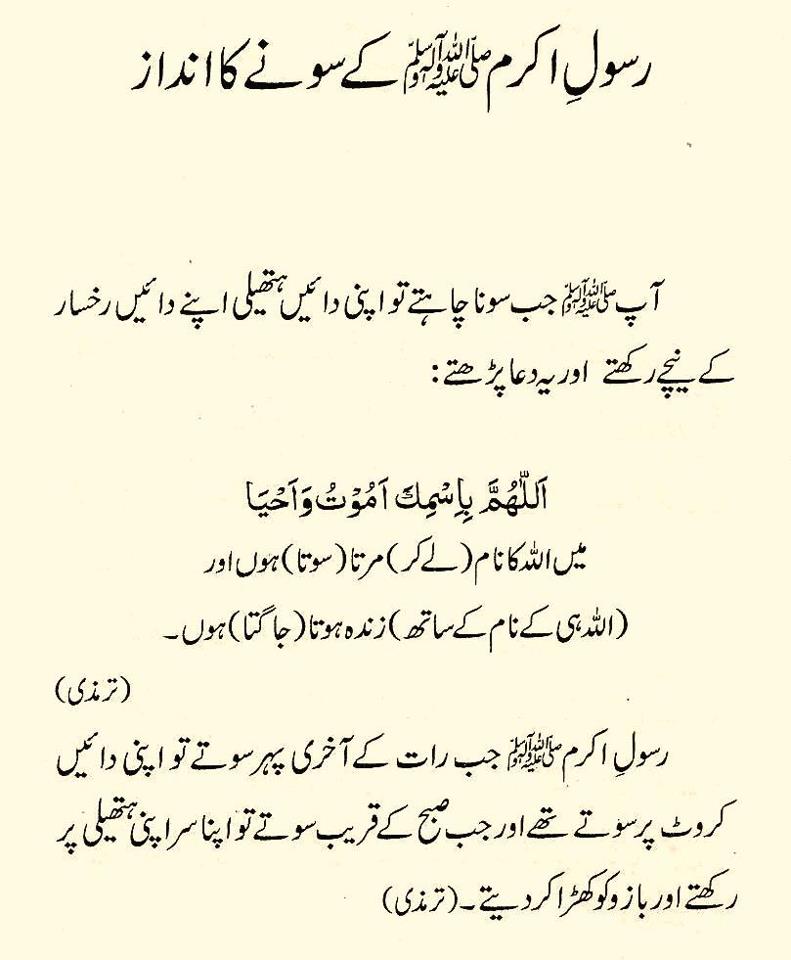 رسولِ اکرم ﷺ کے سونے کا انداز
آپ ﷺ جب سونا چاہتے تو اپنی دائیں ہتھیلی اپنے دائیں رخسار
کے نیچے رکھتے اور یہ دعا پڑھتے:
اَللّٰهُمَّ بِاِسْمِكَ اَمُوْتُ وَاَحْيَا
میں اللہ کا نام (لے کر) مرتا (سوتا) ہوں اور
(اللہ ہی کے نام کے ساتھ) زندہ ہوتا (جاگتا) ہوں۔
(ترمذی)
رسولِ اکرم ﷺ جب رات کے آخری پہر سوتے تو اپنی دائیں
کروٹ پر سوتے تھے اور جب صبح کے قریب سوتے تو اپنا سر اپنی ہتھیلی پر
رکھتے اور بازو کو کھڑا کر دیتے۔ (ترمذی)